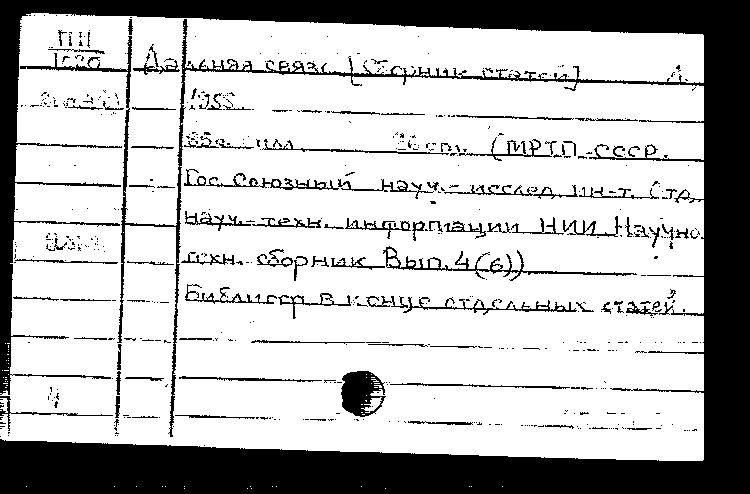 ПII
1030
Дальняя связь. [Сборник статей] Л.,
1955.
85с. илл. 26 см. (МРТП-СССР.
Гос. Союзный науч.-исслед. ин-т. Отд.
науч.-техн. информации НИИ. Научно
техн. сборник Вып. 4(6))
Библиогр в конце отдельных статей.
4